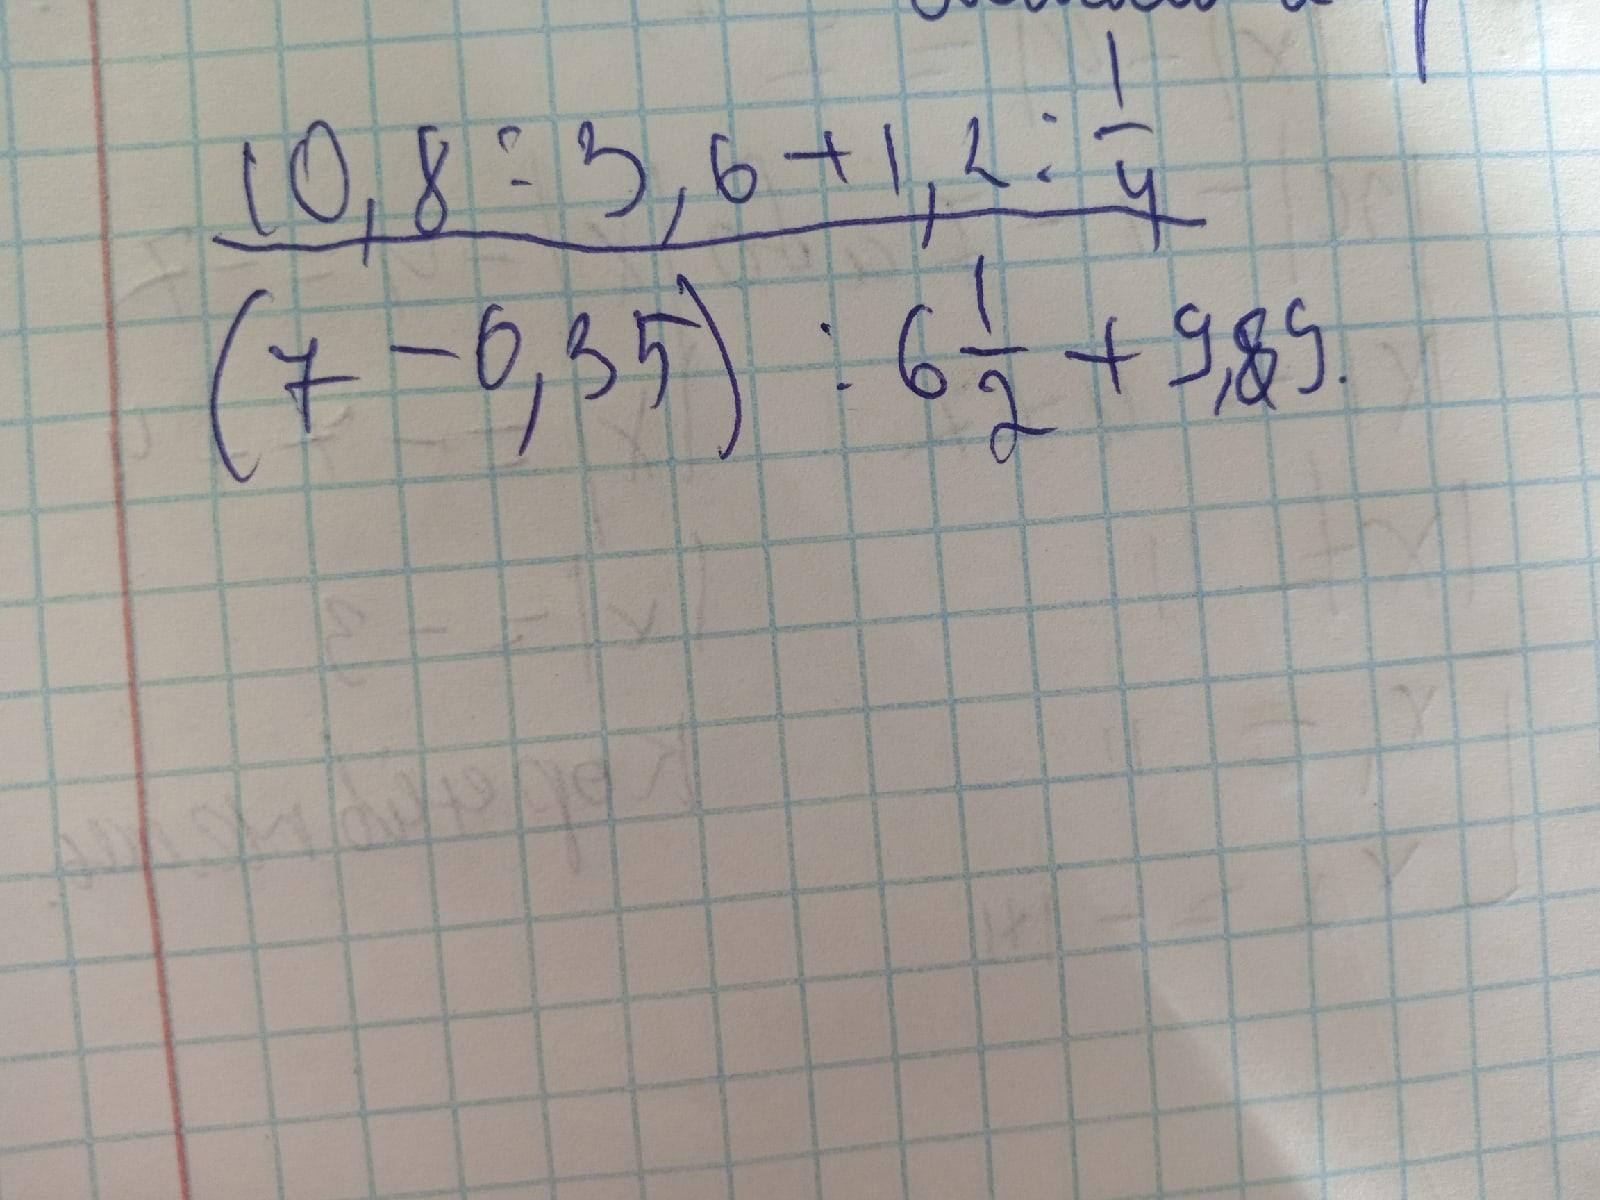 10,8 : 3,6 + 1,2 : 1/4
(7 - 0,35) : 6 1/2 + 9,89.